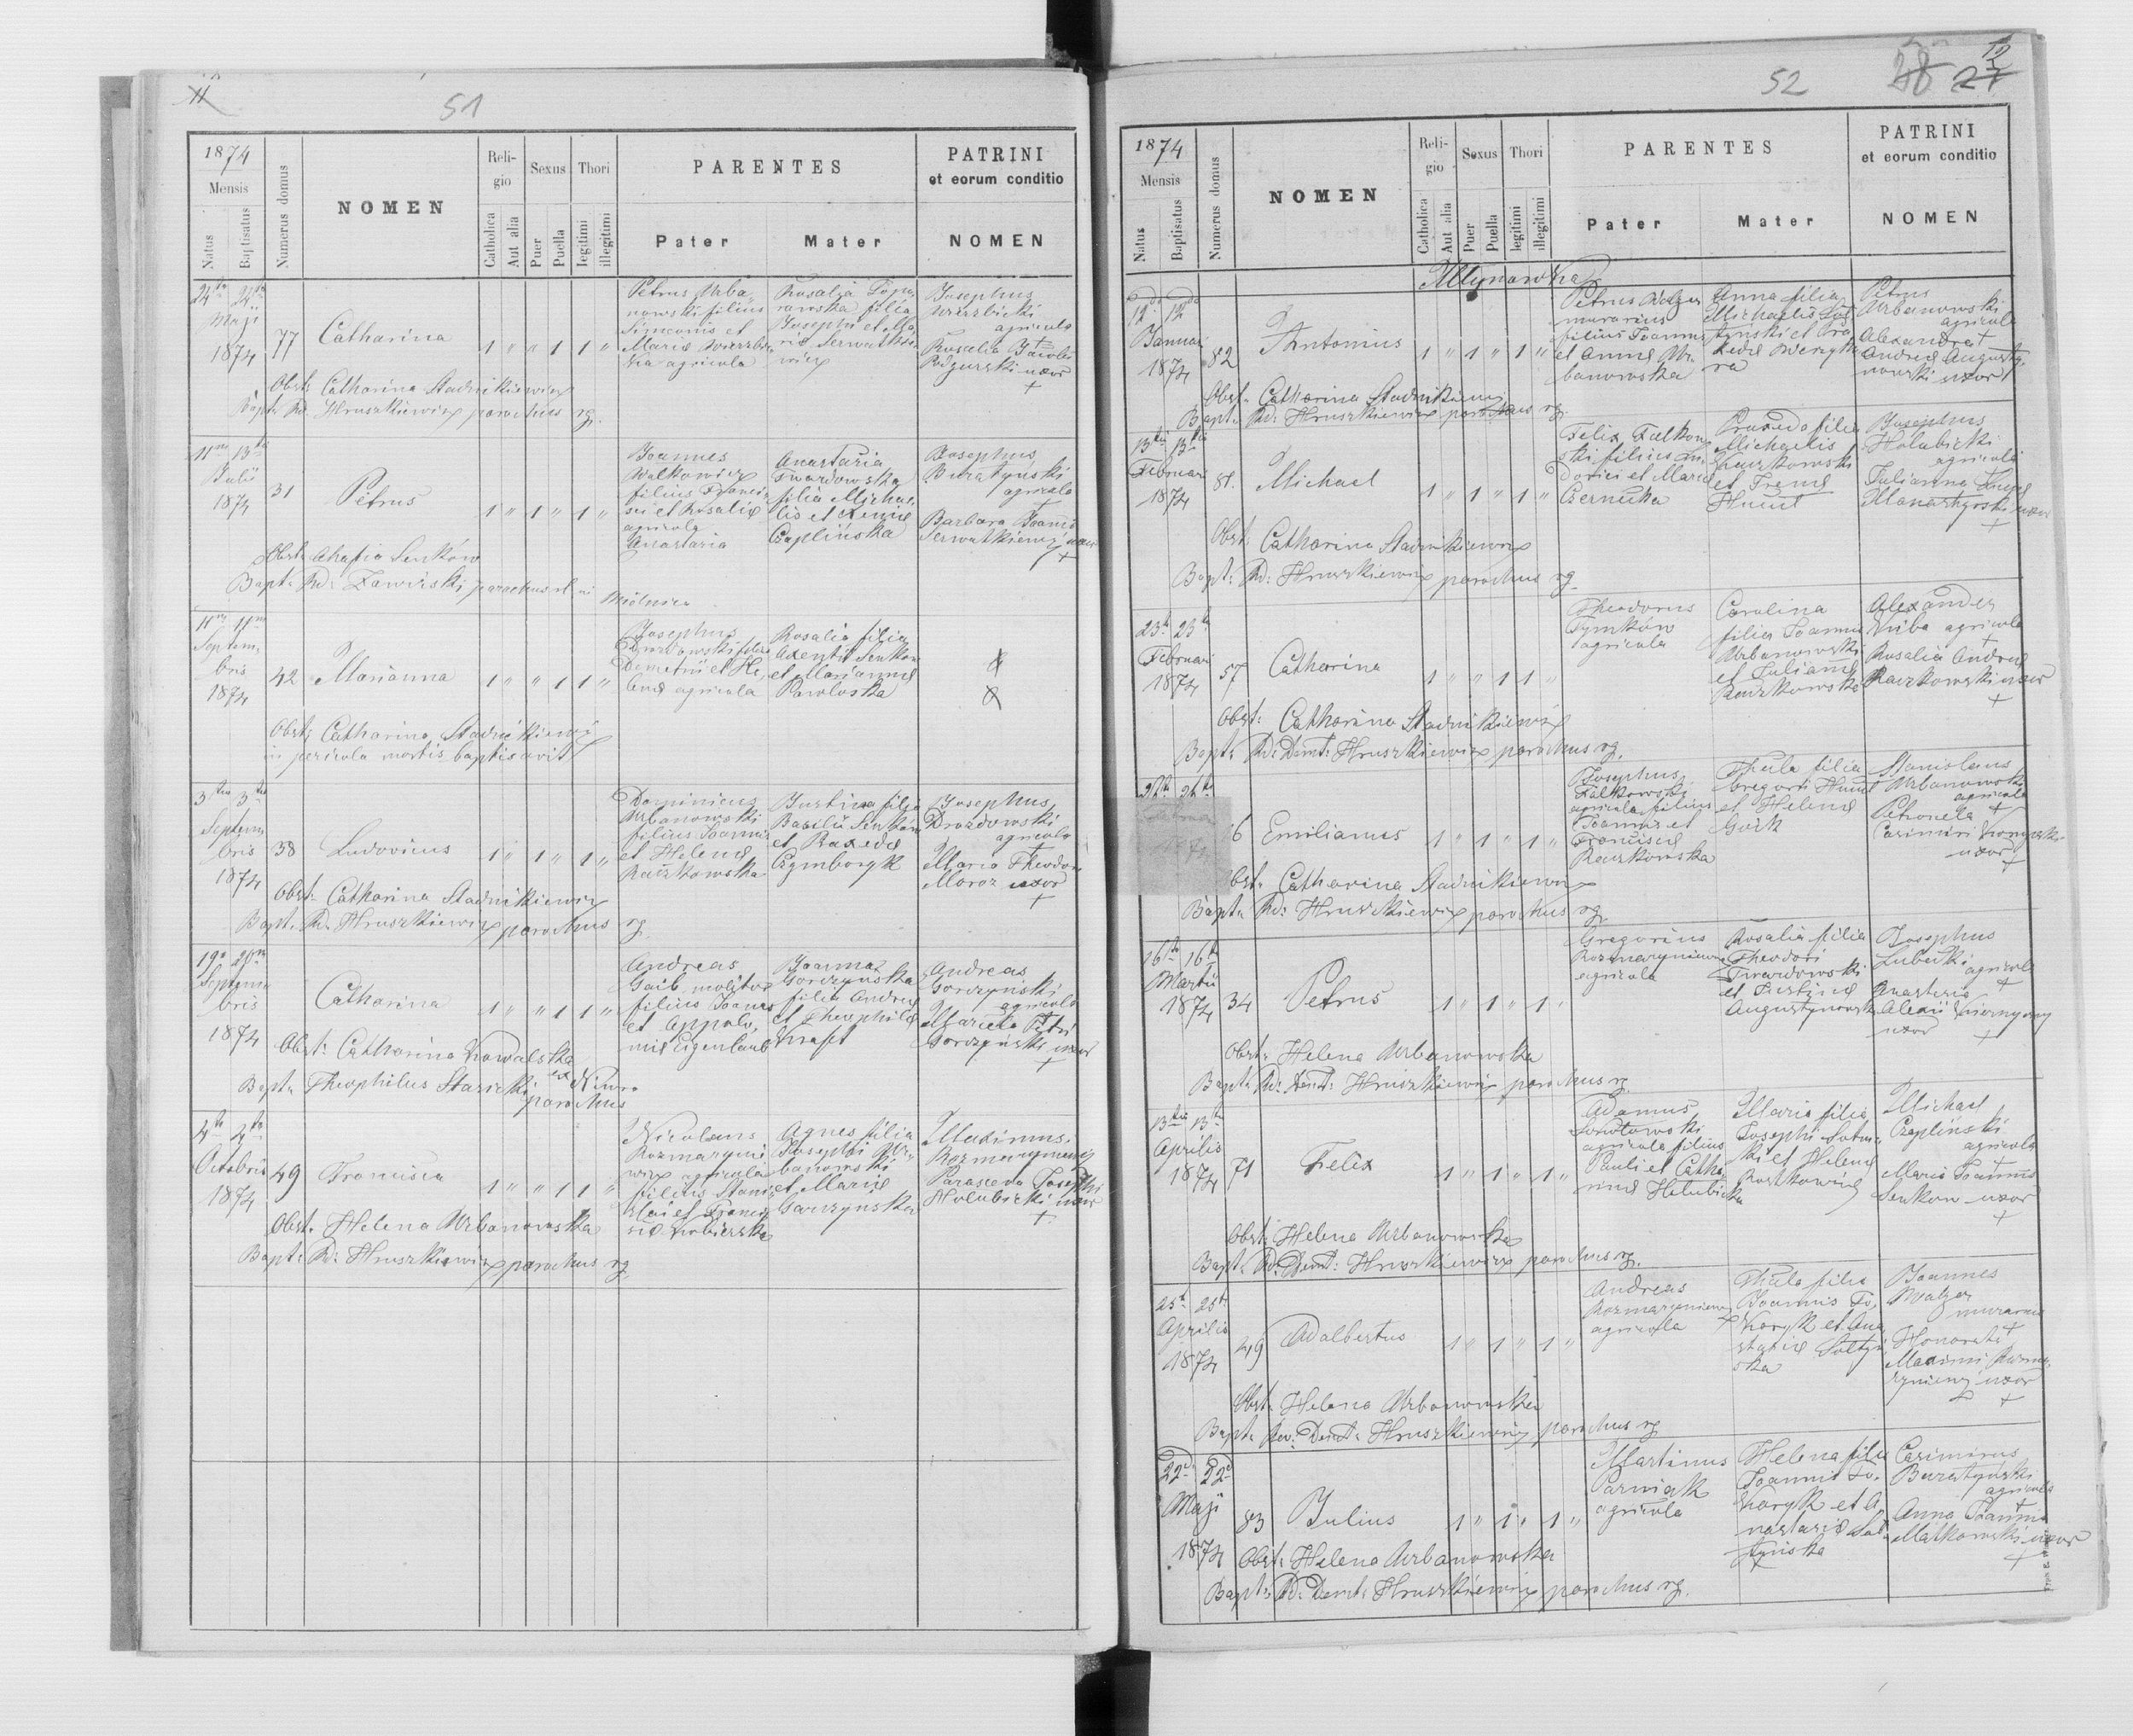 11
51
1874
Mensis
Natus
Baptisatus
Numerus domus
NOMEN
Religio
Catholica
Aut alia
Sexus
Puer
Puella
Thori
legitimi
illegitimi
PARENTES
Pater
Mater
PATRINI
et eorum conditio
NOMEN
24ta 24ta
Maji
1874
77
Catharina
1 " " 1 1 "
Petrus Urba
nowski filius
Simeonis et
Mariæ
agricola
Rosalia
filia
Josephi et Ma
riæ
Josephus
Wierzbicki
agricola
+
Rosalia Jacobi
uxor
+
Obst: Catharina Stadnikiewicz
Bapt: Rd: Hruszkiewicz parochus rg.
11ma 13tia
Julii
1874
31
Petrus
1 " 1 " 1 "
Joannes
Walkowicz
filius Franci
sci et Rosaliæ
agricola
Anastasia
Anastasia
Twardowska
filia Michae
lis et Xeniæ
Czaplińska
Josephus
Buratyński
agricola
+
Barbara Joannis
Serwatkiewicz uxor
+
Obst: Ahafia Senków
Bapt: Rd: Zawirski parochus
Mielnica
11ma 11ma
Septem
bris
1874
42
Marianna
1 " " 1 1 "
Josephus
filius
Demetrii et He
lenæ agricola
Rosalia filia
Axentii Senkow
et Mariannæ
Obst: Catharina Stadnikiewicz
in pericula mortis baptisavit
3tia 3tia
Septem
bris
1874
38
Ludovicus
1 " 1 " 1 "
Dominicus
Urbanowski
filius Joannis
et Helenæ
Raczkowska
Justina filia
Basilii Senków
et
Cymboryk
Josephus
Drozdowski
agricola
+
Maria Theodori
Moroz uxor
+
Obst: Catharina Stadnikiewicz
Bapt: Rd: Hruszkiewicz parochus rg
19a 20ma
Septem
bris
1874
Catharina
1 " " 1 1 "
Andreas
Gaib molitor
filius Joannis
et Appolo
niæ Eigenlaub
Joanna
Gorczyńska
filia Andreæ
et Theophilæ
Kraft
Andreas
Gorczyński
agricola
+
Mariela Petri
Gorczyński uxor
+
Obst: Catharina Kowalska
Bapt: Theophilus Staricki
parochus
4ta 4ta
Octobris
1874
49
Francisca
1 " " 1 1 "
Nicolaus
Rozmaryni
wicz agricola
filius Stanis
lai et Francis
cæ
Agnes filia
Josephi Ur
banowski
et Mariæ
Gorczyńska
Maximus
Rozmaryniewicz
+
Parasceva Josephi
Holubicki uxor
+
Obst: Helena Urbanowska
Bapt: Rd: Hruszkiewicz parochus rg
52
28
12
27
1874
Mensis
Natus
Baptisatus
Numerus domus
NOMEN
Religio
Catholica
Aut alia
Sexus
Puer
Puella
Thori
legitimi
illegitimi
PARENTES
Pater
Mater
PATRINI
et eorum conditio
NOMEN
Młynowka
12da 12da
Januari
1874
82
Antonius
1 " 1 " 1 "
Petrus Walzer
murarius
filius Joannis
et Annæ Ur
banowska
Anna filia
Michaelis
Petrus
Urbanowski
agricola
+
Alexandra
Andreæ Augusty
nowski uxor
Obst: Catharina Stadnikiewicz
Bapt: Rd: Hruszkiewicz parochus rg.
13tia 13tia
Februari
1874
81.
Michael
1 " 1 " 1 "
Felix Falkow
ski filius Lu
dovici et Mariæ
Czernecka
filia
Michaelis
Raczkowski
et Irenæ
Josephus
Holubicki
agricola
Julianna
uxor
+
Obst: Catharina Stadnikiewicz
Bapt: Rd: Hruszkiewicz parochus rg
23tia 23tia
Februari
1874
57
Catharina
1 " " 1 1 "
Theodorus
Tymków
agricola
Carolina
filia Joannis
Urbanowski
et Julianæ
Raczkowska
Alexander
agricola
+
Rosalia Andreæ
Raczkowski uxor
+
Obst: Catharina Stadnikiewicz
Bapt: Rd: Demt: Hruszkiewicz parochus rg.
6
Emilianus
1 " 1 " 1 "
Josephus
Falkowski
agricola filius
Joannis et
Franciscæ
Raczkowska
Thecla filia
Gregorii
et Helenæ
Stanislaus
Urbanowski
agricola
+
Petronela
Casimiri
uxor
+
Obst: Catharina Stadnikiewicz
Bapt: Rd: Hruszkiewicz parochus rg
16ta 16ta
Martii
1874
34
Petrus
1 " 1 " 1 "
Gregorius
Rozmaryniewicz
agricola
Rosalia filia
Theodori
Twardowski
et Justinæ
Augustynowska
Josephus
Lubecki
agricola
+
Anastasia
Alexii
uxor
+
Obst: Helena Urbanowska
Bapt: Rd: Demt: Hruszkiewicz parochus rg
13tia 13tia
Aprilis
1874
71
Felix
1 " 1 " 1 "
Adamus
agricola filius
Pauli et Catha
rinæ Holubicka
Maria filia
Josephi
et Helenæ
Michael
Czaplinski
agricola
+
Maria Joannis
Senkow uxor
+
Obst: Helena Urbanowska
Bapt: Rd: Demt: Hruszkiewicz parochus rg.
25ta 25ta
Aprilis
1874
49
Adalbertus
1 " 1 " 1 "
Andreas
Rozmaryniewicz
agricola
Thecla filia
Joannis To
karyk et Ana
stasiæ Soltyń
ska
Joannes
Walzer
murarius
+
Honorata
Maximi Rozma
ryniewicz uxor
+
Obst: Helena Urbanowska
Bapt: Rev: Demt: Hruszkiewicz parochus rg
22da 22da
Maji
1874
83
Julius
1 " 1 " 1 "
Martinus
Parniak
agricola
Helena filia
Joannis To
karyk et A
nastasiæ Sol
tyńska
Casimirus
Buratyński
agricola
+
Anna Joannis
Malkowski uxor
+
Obst: Helena Urbanowska
Bapt: Rd: Demt: Hruszkiewicz parochus rg.